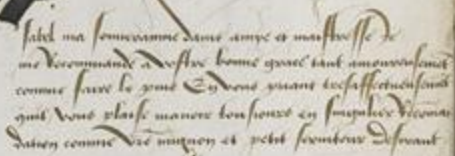 Isabel ma souveraine dame amye et maistresse Je
me Recommande a vostre bonne grace tant amoureusement
comme faire le puis En vous priant tresaffectueusement
quil vous plaise mavoir tousiours en singuliere Recoman
dation comme vre mignon et petit serviteur Desirant